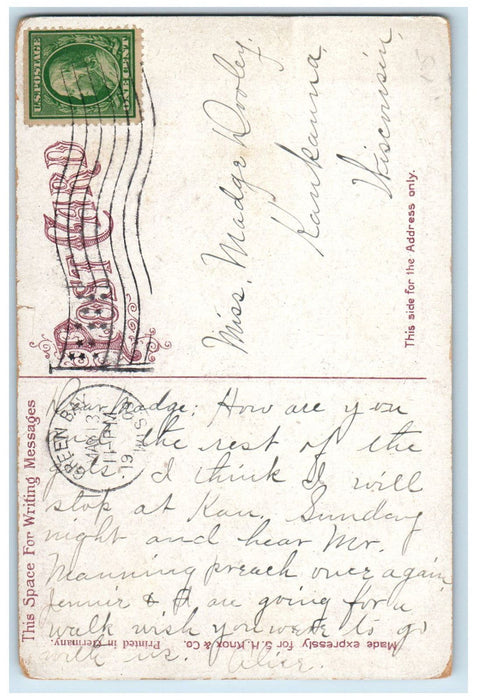 U.S. POSTAGE
ONE CENT
POST CARD
Miss. Madge Dooley.
Kaukauna,
Wisconsin.
This side for the Address only.
15
This Space For Writing Messages
GREEN BAY,
MAR 13
11-PM
19 09
WIS
Dear Madge: How are you
and the rest of the
girls. I think I will
stop at Kau. Sunday
night and hear Mr.
Manning preach once again
Jennie & I are going for a
walk wish you were to go
with us. Alice.
Made expressly for S. H. Knox & Co. Printed in Germany.